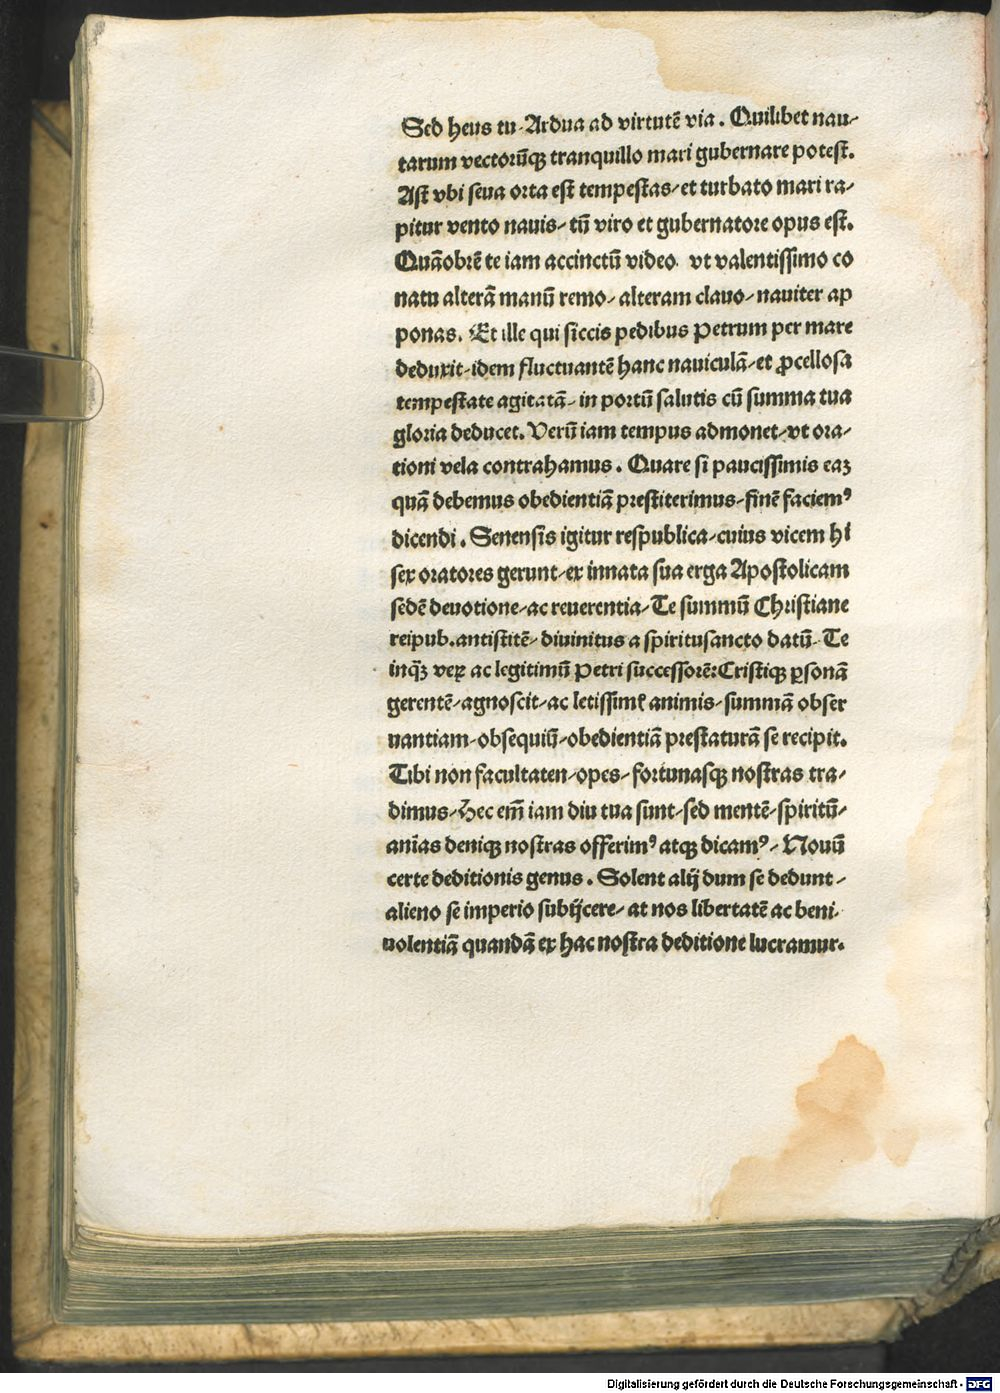 Sed heus tu-Ardua ad virtutē via. Quilibet nau-
tarum vectorūqꝫ tranquillo mari gubernare potest.
Ast vbi seua orta est tempestas-et turbato mari ra-
pitur vento nauis-tū viro et gubernatore opus est.
Quāobrē te iam accinctū video. vt valentissimo co
natu alterā manū remo-alteram clauo-nauiter ap
ponas. Et ille qui siccis pedibus Petrum per mare
deduxit-idem fluctuantē hanc nauiculā-et ꝓcellosa
tempestate agitatā-in portū salutis cū summa tua
gloria deducet. Verū iam tempus admonet-vt ora-
tioni vela contrahamus. Quare si paucissimis eaꝫ
quā debemus obedientiā prestiterimus-finē faciemꝰ
dicendi. Senensis igitur respublica-cuius vicem hi
sex oratores gerunt-ex innata sua erga Apostolicam
sedē deuotione-ac reuerentia-Te summū Christiane
reipub.antistitē-diuinitus a spiritusancto datū-Te
inqꝫ̄ veꝝ ac legitimū Petri successorē:Cristiqꝫ ꝑsonā
gerentē-agnoscit-ac letissimꝭ animis-summā obser
uantiam-obsequiū-obedientiā prestaturā se recipit.
Tibi non facultaten-opes-fortunasqꝫ nostras tra-
dimus-Hec em̄ iam diu tua sunt-sed mentē-spiritū-
anīas deniqꝫ nostras offerimꝰ atqꝫ dicamꝰ-Nouū
certe deditionis genus. Solent alij dum se dedunt-
alieno se imperio subijcere-at nos libertatē ac beni-
uolentiā quandā ex hac nostra deditione lucramur.
Digitalisierung gefördert durch die Deutsche Forschungsgemeinschaft - DFG